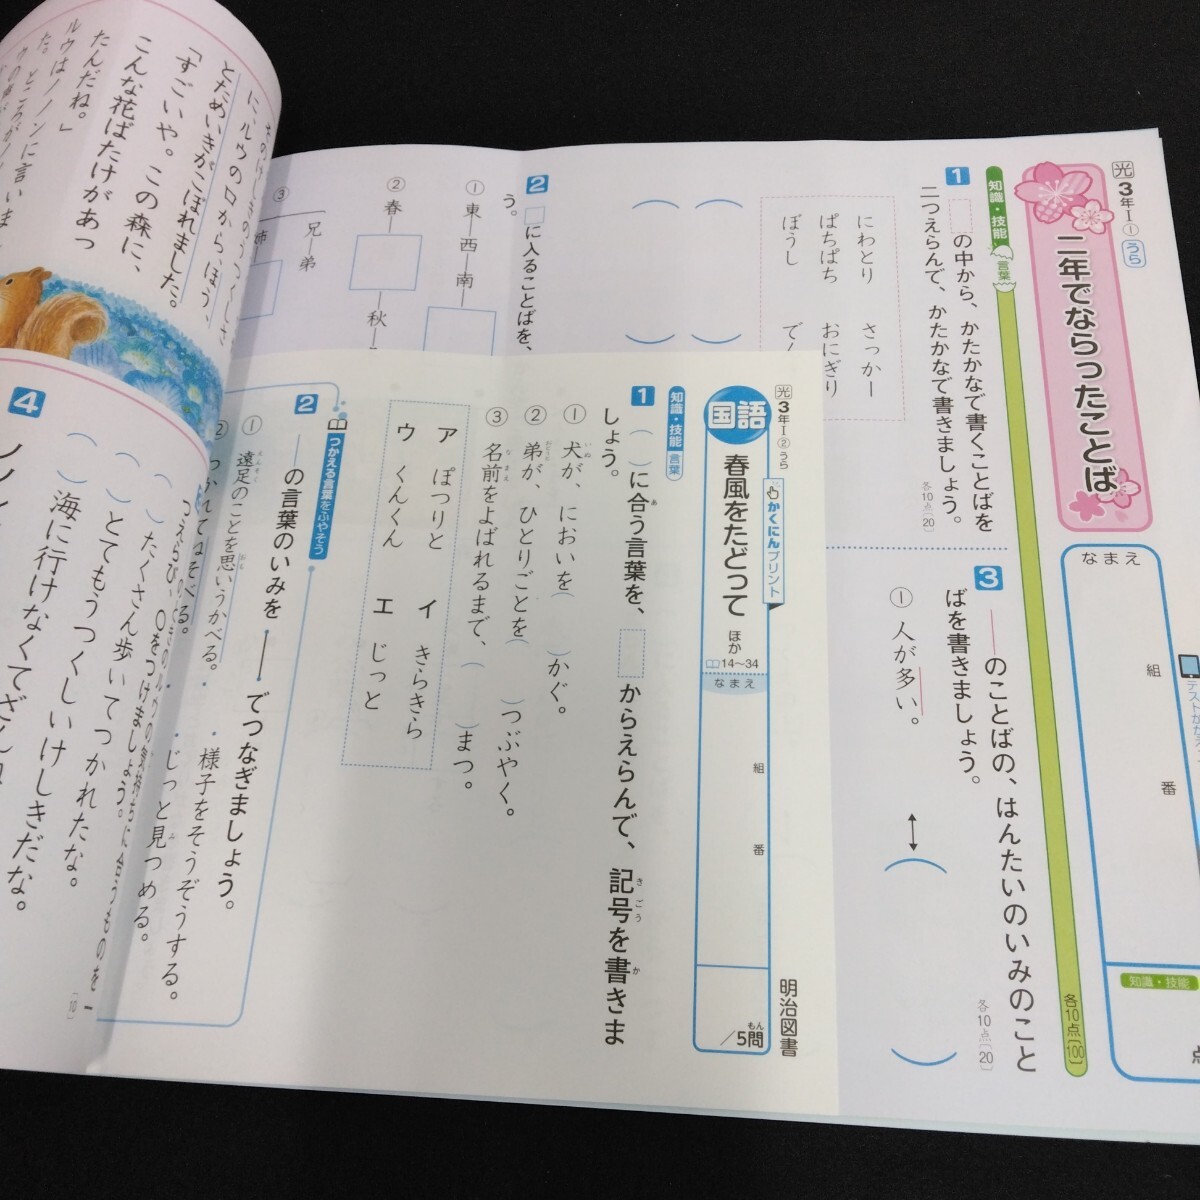 光3年Ⅰ-①うら
二年でならったことば
なまえ
組
番
知識・技能
知識・技能 言葉
各10点〔100〕
1
の中から、かたかなで書くことばを
二つえらんで、かたかなで書きましょう。
各10点〔20〕
にわとり
さっかー
ぱちぱち
おにぎり
ぼうし
2
□に入ることばを、
う。
①東―西―南―
②春
秋
③
兄―弟
3
―のことばの、はんたいのいみのこと
ばを書きましょう。
各10点〔20〕
①人が多い。
光3年Ⅰ-②うら
国語
春風をたどって
ほか
14〜34
かくにんプリント
なまえ
組
番
/5問
明治図書
知識・技能 言葉
1
( )に合う言葉を、 からえらんで、記号を書きま
しょう。
①犬が、においを( )かぐ。
②弟が、ひとりごとを( )つぶやく。
③名前をよばれるまで、( )まつ。
ア ぽつりと
イ きらきら
ウ くんくん
エ じっと
つかえる言葉をふやそう
2
―の言葉のいみを―でつなぎましょう。
①遠足のことを思いうかべる。
・様子をそうぞうする。
・じっと見つめる。
に、ルウの口から、ほう、
とためいきがこぼれました。
「すごいや。この森に、
こんな花ばたけがあっ
たんだね。」
ルウはノノンに言いま
4
( )たくさん歩いてつかれたな。
( )とてもうつくしいけしきだな。
( )海に行けなくてざんね
〔10〕